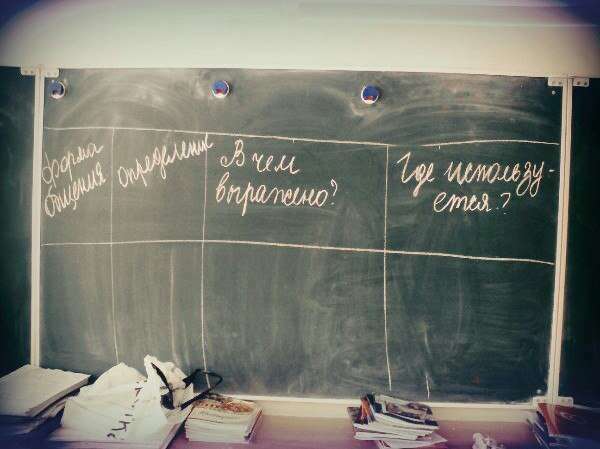 Форма
общения
определение
В чем
выражено?
Где использу-
ется?